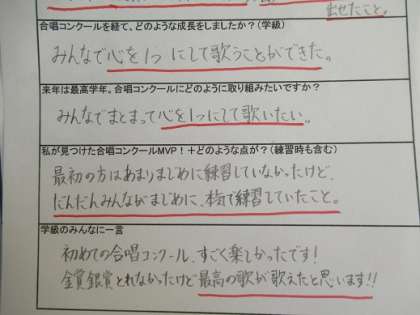 出せたこと。
合唱コンクールを経て、どのような成長をしましたか？(学級)
みんなで心を1つにして歌うことができた。
来年は最高学年。合唱コンクールにどのように取り組みたいですか？
みんなでまとまって心を1つにして歌いたい。
私が見つけた合唱コンクールMVP！＋どのような点が？(練習時も含む)
最初の方はあまりまじめに練習していなかったけど、
だんだんみんながまじめに、本気で練習していたこと。
学級のみんなに一言
初めての合唱コンクール、すごく楽しかったです！
金賞銀賞とれなかったけど最高の歌が歌えたと思います!!